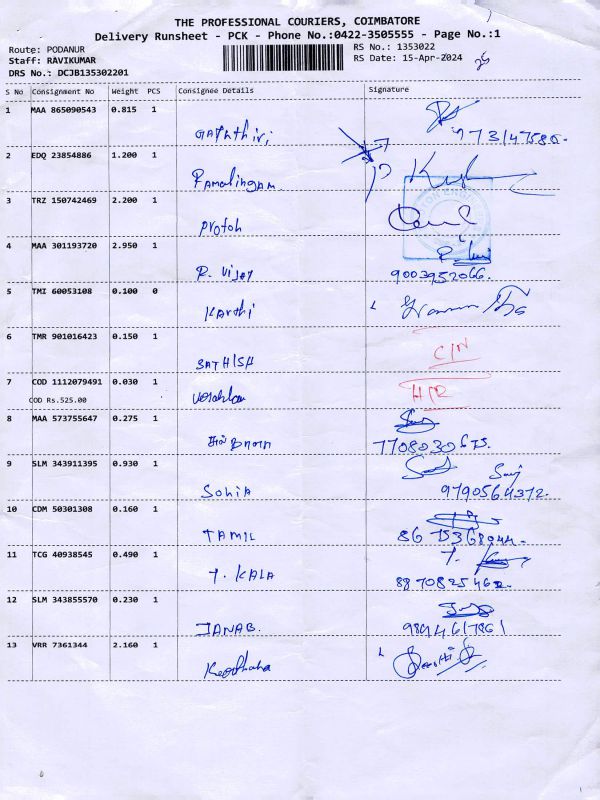 THE PROFESSIONAL COURIERS, COIMBATORE
Delivery Runsheet - PCK - Phone No.:0422-3505555 - Page No.:1
Route: PODANUR RS No.: 1353022
Staff: RAVIKUMAR RS Date: 15-Apr-2024
DRS No.: DCJB135302201
S No Consignment No Weight PCS Consignee Details Signature
1 MAA 865090543 0.815 1
Gayathiri
2 EDQ 23854886 1.200 1
Ramalingam
3 TRZ 150742469 2.200 1
4 MAA 301193720 2.950 1
R. Vijey 9003952066.
5 TMI 60053108 0.100 0
Karthi
6 TMR 901016423 0.150 1
SATHISH C/N
7 COD 1112079491 0.030 1
COD Rs.525.00 H/R
8 MAA 573755647 0.275 1
9 SLM 343911395 0.930 1
Sohia 9790564372.
10 CDM 50301308 0.160 1
TAMIL
11 TCG 40938545 0.490 1
T. KALA 8870825462.
12 SLM 343855570 0.230 1
JANAB.
13 VRR 7361344 2.160 1